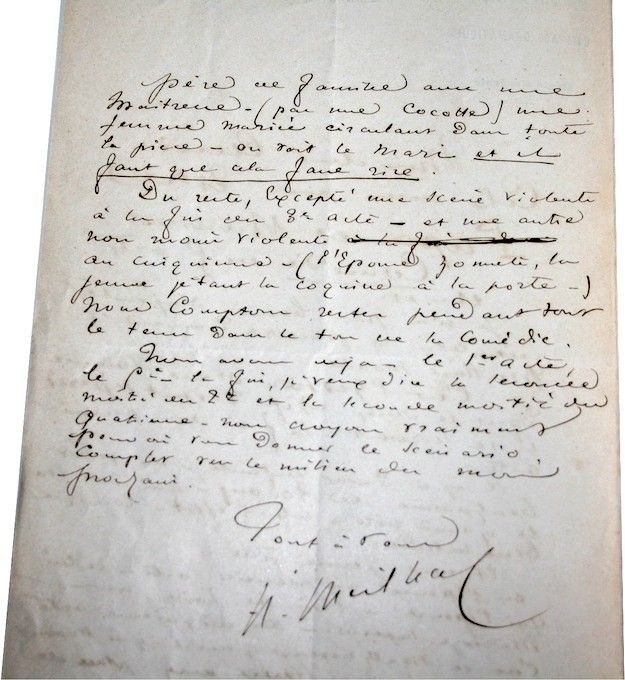 père de famille avec une
Maîtresse - (pas une Cocotte) une
femme mariée circulant Dans toute
la pièce - on voit le Mari et il
faut que cela fasse rire.
Du reste, Excepté une scène violente
à la fin du 3e acte - et une autre
non moins violente à la fin
au cinquième - (l'Epouse honnête, la
femme jetant la coquine à la porte -)
Nous Comptons rester pendant tout
le temps Dans le ton de la Comédie.
Nous avons déjà - le 1er acte,
le 5e - la fin, je veux dire la seconde
moitié du 2e et la seconde moitié du
Quatrième - nous croyons vraiment
pouvoir vous Donner le scénario
Complet vers le milieu du mois
prochain.
Tout à vous
H. Meilhac